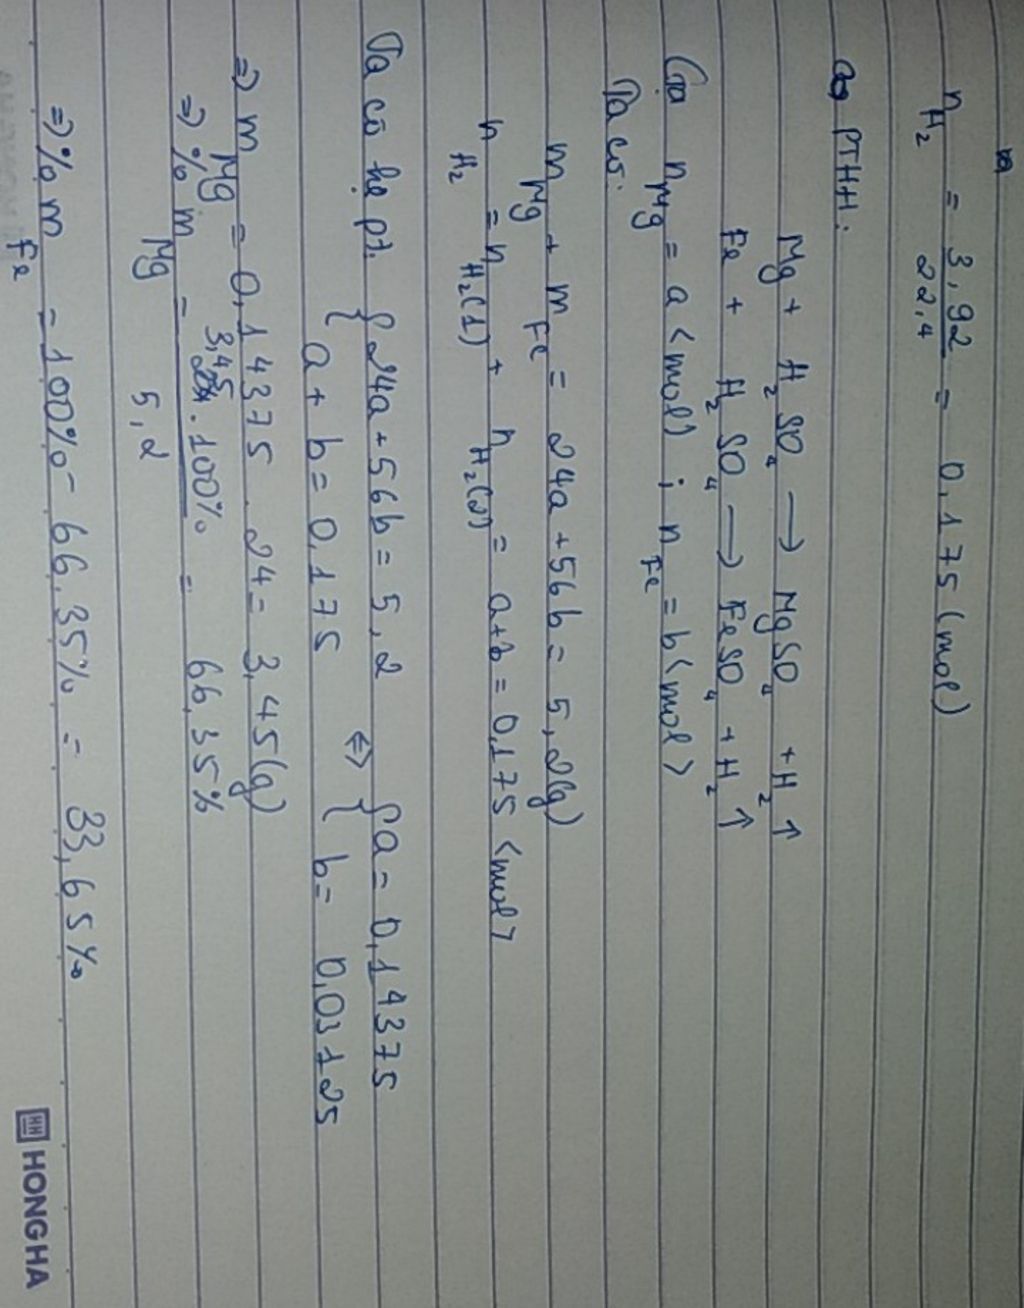 n H₂ = 3,92 / 22,4 = 0,175 (mol)
a, PTHH:
Mg + H₂SO₄ → MgSO₄ + H₂↑
Fe + H₂SO₄ → FeSO₄ + H₂↑
Gọi n Mg = a <mol> ; n Fe = b <mol>
Ta có:
m Mg + m Fe = 24a + 56b = 5,2(g)
n H₂ = n H₂(1) + n H₂(2) = a+b = 0,175 <mol>
Ta có hệ pt. { 24a + 56b = 5,2 ⇔ { a = 0,14375
{ a + b = 0,175 { b = 0,03125
⇒ m Mg = 0,14375 . 24 = 3,45(g)
⇒ % m Mg = 3,45 . 100% / 5,2 = 66,35%
⇒ % m Fe = 100% - 66,35% = 33,65%
HH HONG HA